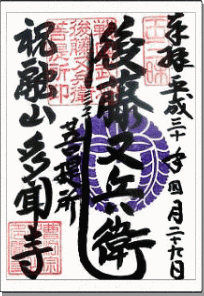 奉拝 平成三十年四月二十九日
後藤又兵衛
菩提所
祝融山 多聞寺
後藤又兵衛
菩提所印